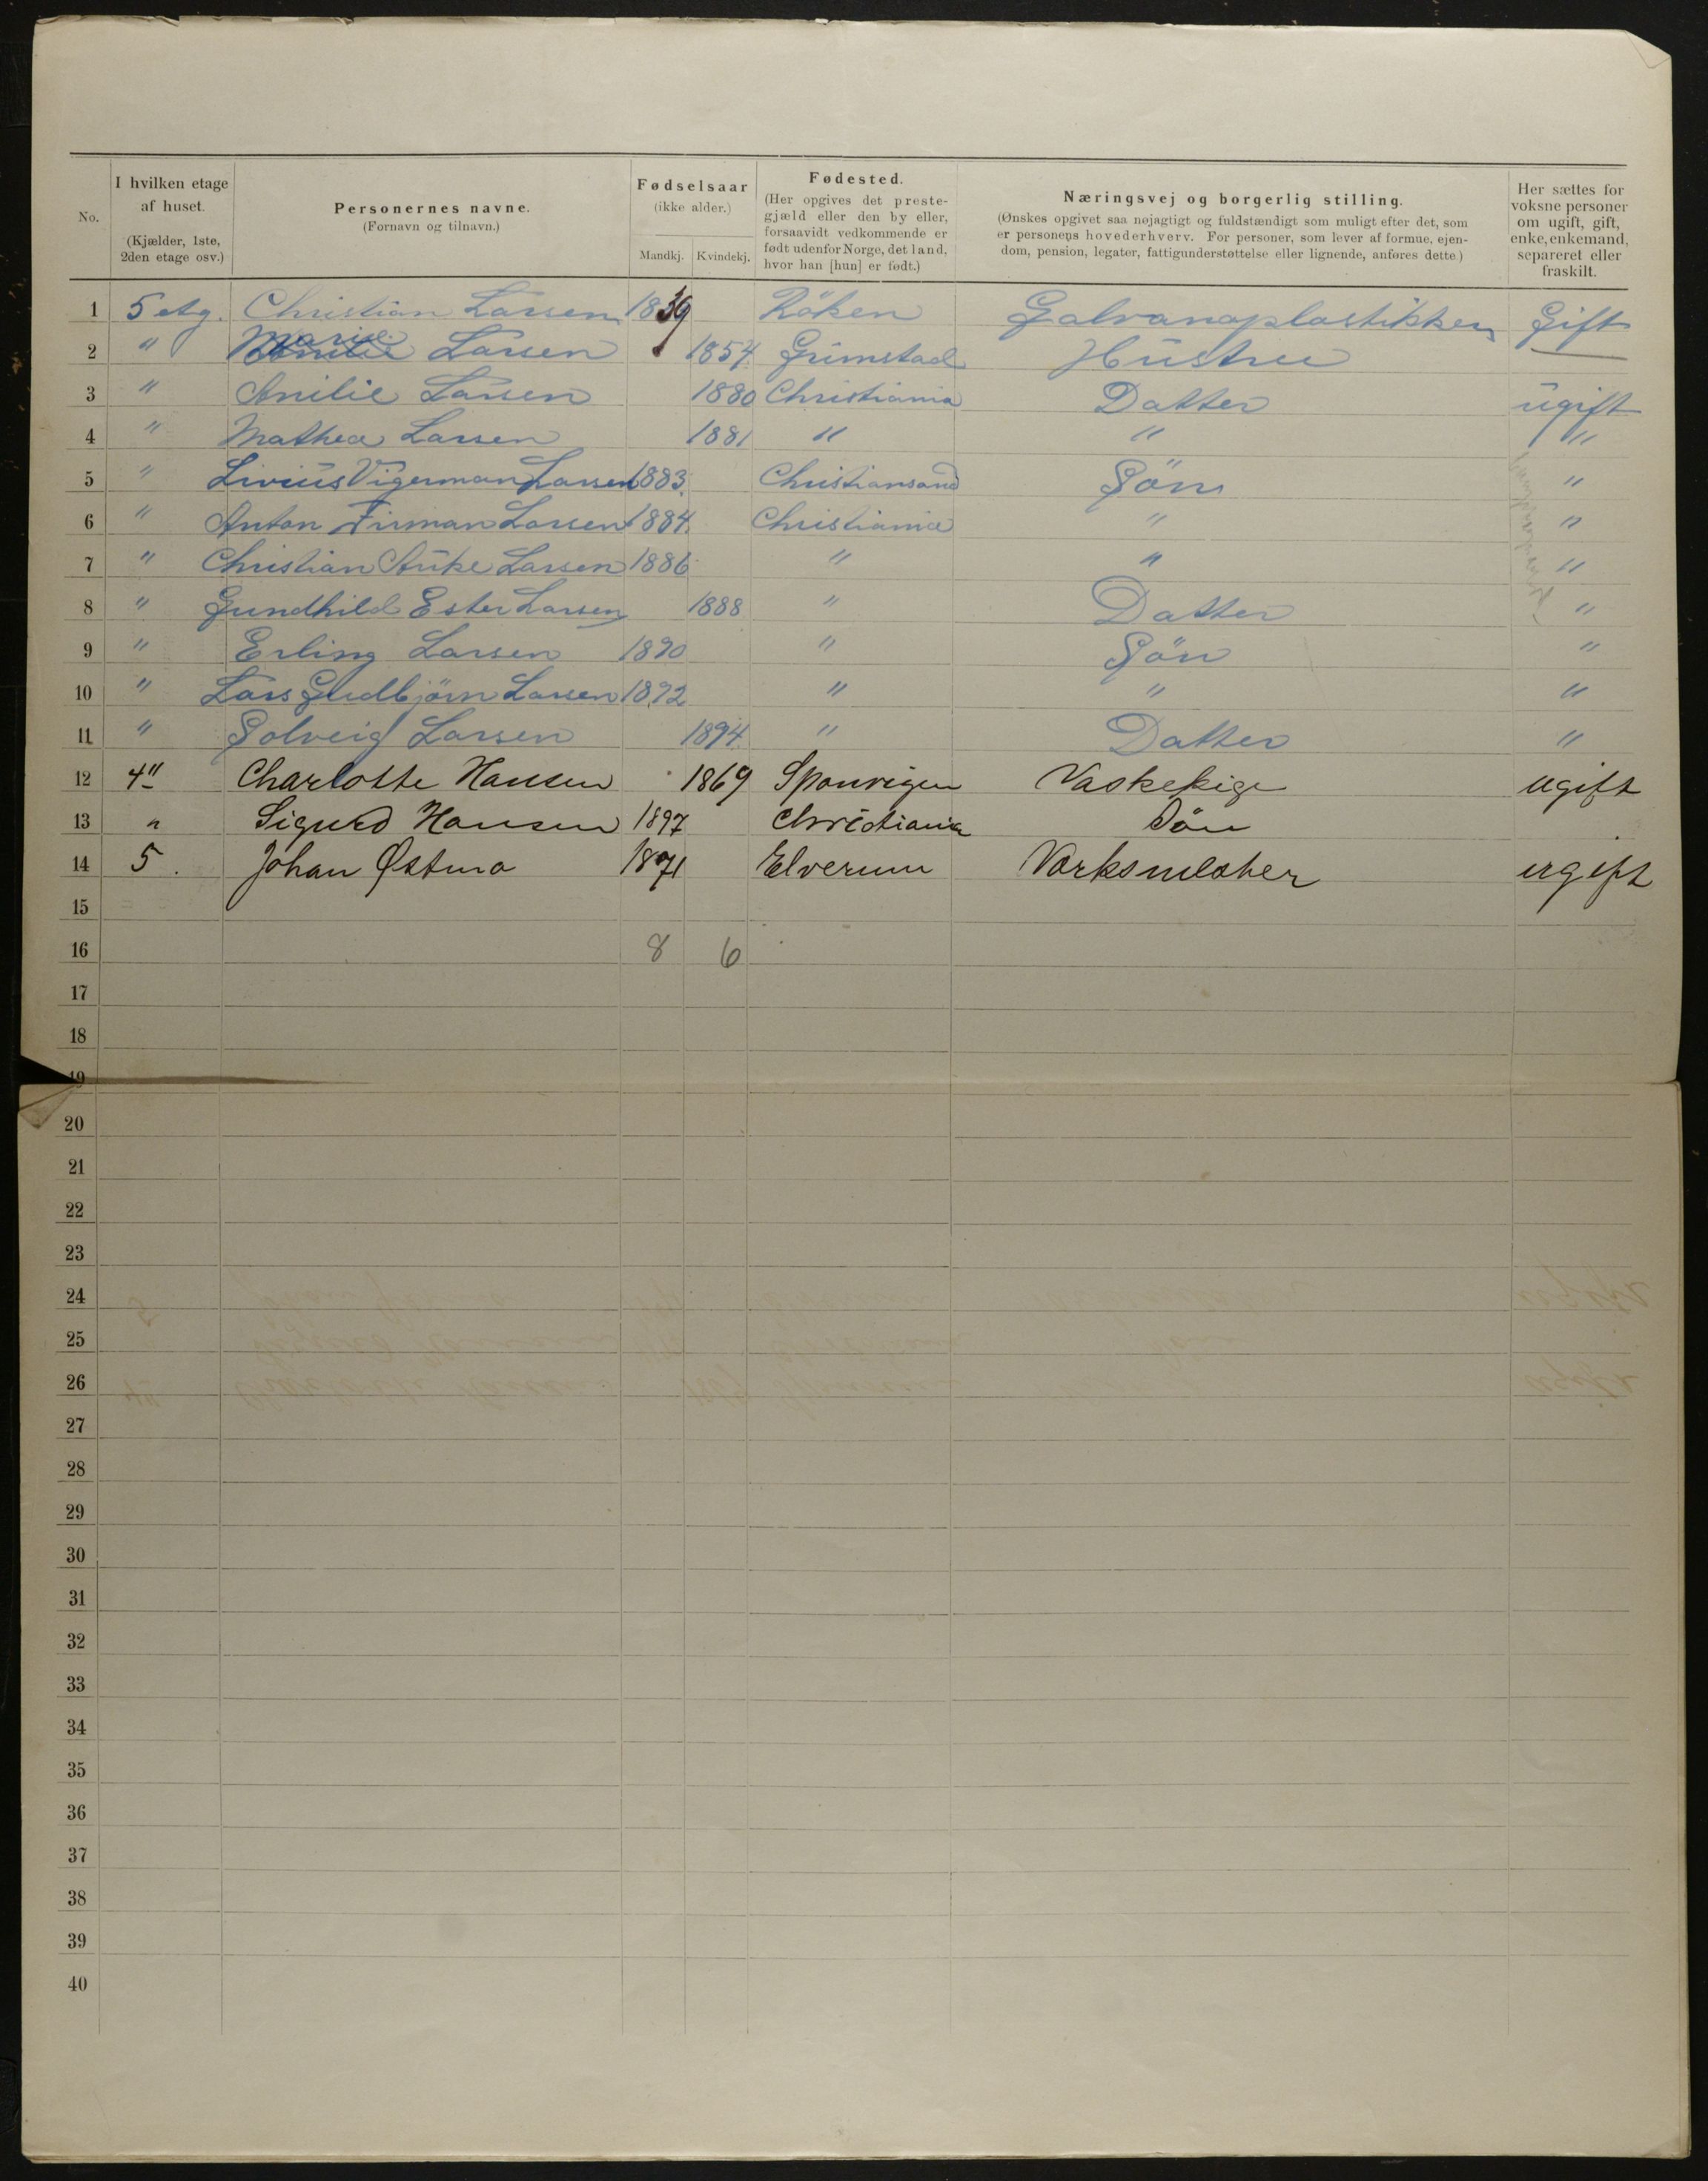 No. I hvilken etage af huset. (Kjælder, 1ste, 2den etage osv.) Personernes navne. (Fornavn og tilnavn.) Fødselsaar (ikke alder.) Mandkj. Kvindekj. Fødested. (Her opgives det prestegjæld eller den by eller, forsaavidt vedkommende er født udenfor Norge, det land, hvor han [hun] er født.) Næringsvej og borgerlig stilling. (Ønskes opgivet saa nøjagtigt og fuldstændigt som muligt efter det, som er personens hovederhverv. For personer, som lever af formue, ejendom, pension, legater, fattigunderstøttelse eller lignende, anføres dette.) Her sættes for voksne personer om ugift, gift, enke, enkemand, separeret eller fraskilt.
1 5 etg. Christian Larsen 1839 Röken Galvanoplastikker Gift
2 " Marie Larsen 1854 Grimstad Hustru
3 " Amilie Larsen 1880 Christiania Datter ugift
4 " Mathea Larsen 1881 " " "
5 " Livius Vigerman Larsen 1883 Christiansand Sön "
6 " Anton Firman Larsen 1884 Christiania " "
7 " Christian Larsen 1886 " " "
8 " Gundhild Ester Larsen 1888 " Datter "
9 " Erling Larsen 1890 " Sön "
10 " Lars Gudbjörn Larsen 1892 " " "
11 " Solveig Larsen 1894 " Datter "
12 4" Charlotte Hansen 1869 Vaskepige ugift
13 " Sigurd Hansen 1897 Christiania Sön
14 5. Johan Østmo 1871 Elverum Værksmester ugift
15
16 8 6
17
18
19
20
21
22
23
24
25
26
27
28
29
30
31
32
33
34
35
36
37
38
39
40